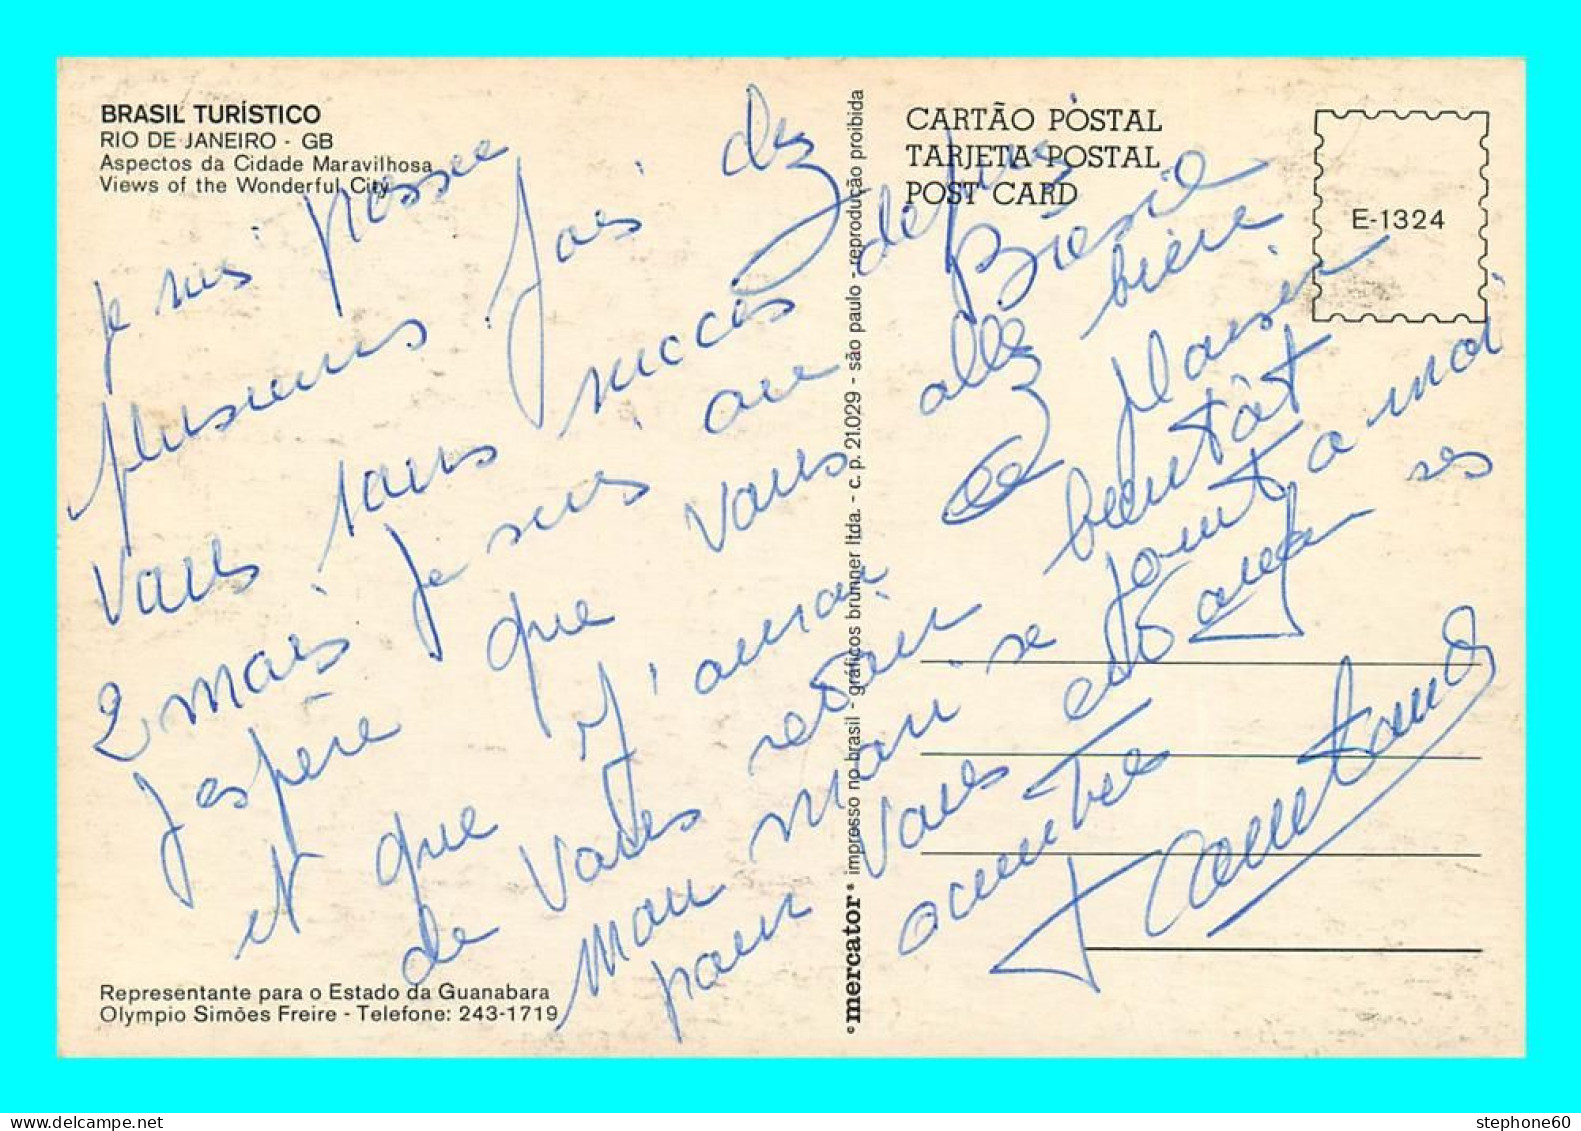 BRASIL TURÍSTICO
RIO DE JANEIRO - GB
Aspectos da Cidade Maravilhosa
Views of the Wonderful City
je suis passée
plusieurs fois chez
vous sans succès depuis
2 mois je suis au Brésil
J'espère que vous allez bien
et que j'aurai le plaisir
de vous revoir bientôt
mon mari se joint a moi
pour vous ses
amitiés
Representante para o Estado da Guanabara
Olympio Simões Freire - Telefone: 243-1719
°mercator® impresso no brasil - gráficos brunner ltda. - c. p. 21.029 - são paulo - reprodução proibida
CARTÃO POSTAL
TARJETA POSTAL
POST CARD
E-1324
stephone60